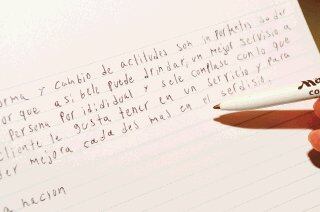 orma y cambio de actitudes son inportantes da der
or que asi bele puede brindar, un mejor servisio a
persona por idididual y sele complase con lo que
cliente le gusta tener en un servicio y para
der mejora cada des mas en el serdisio.
a nacion